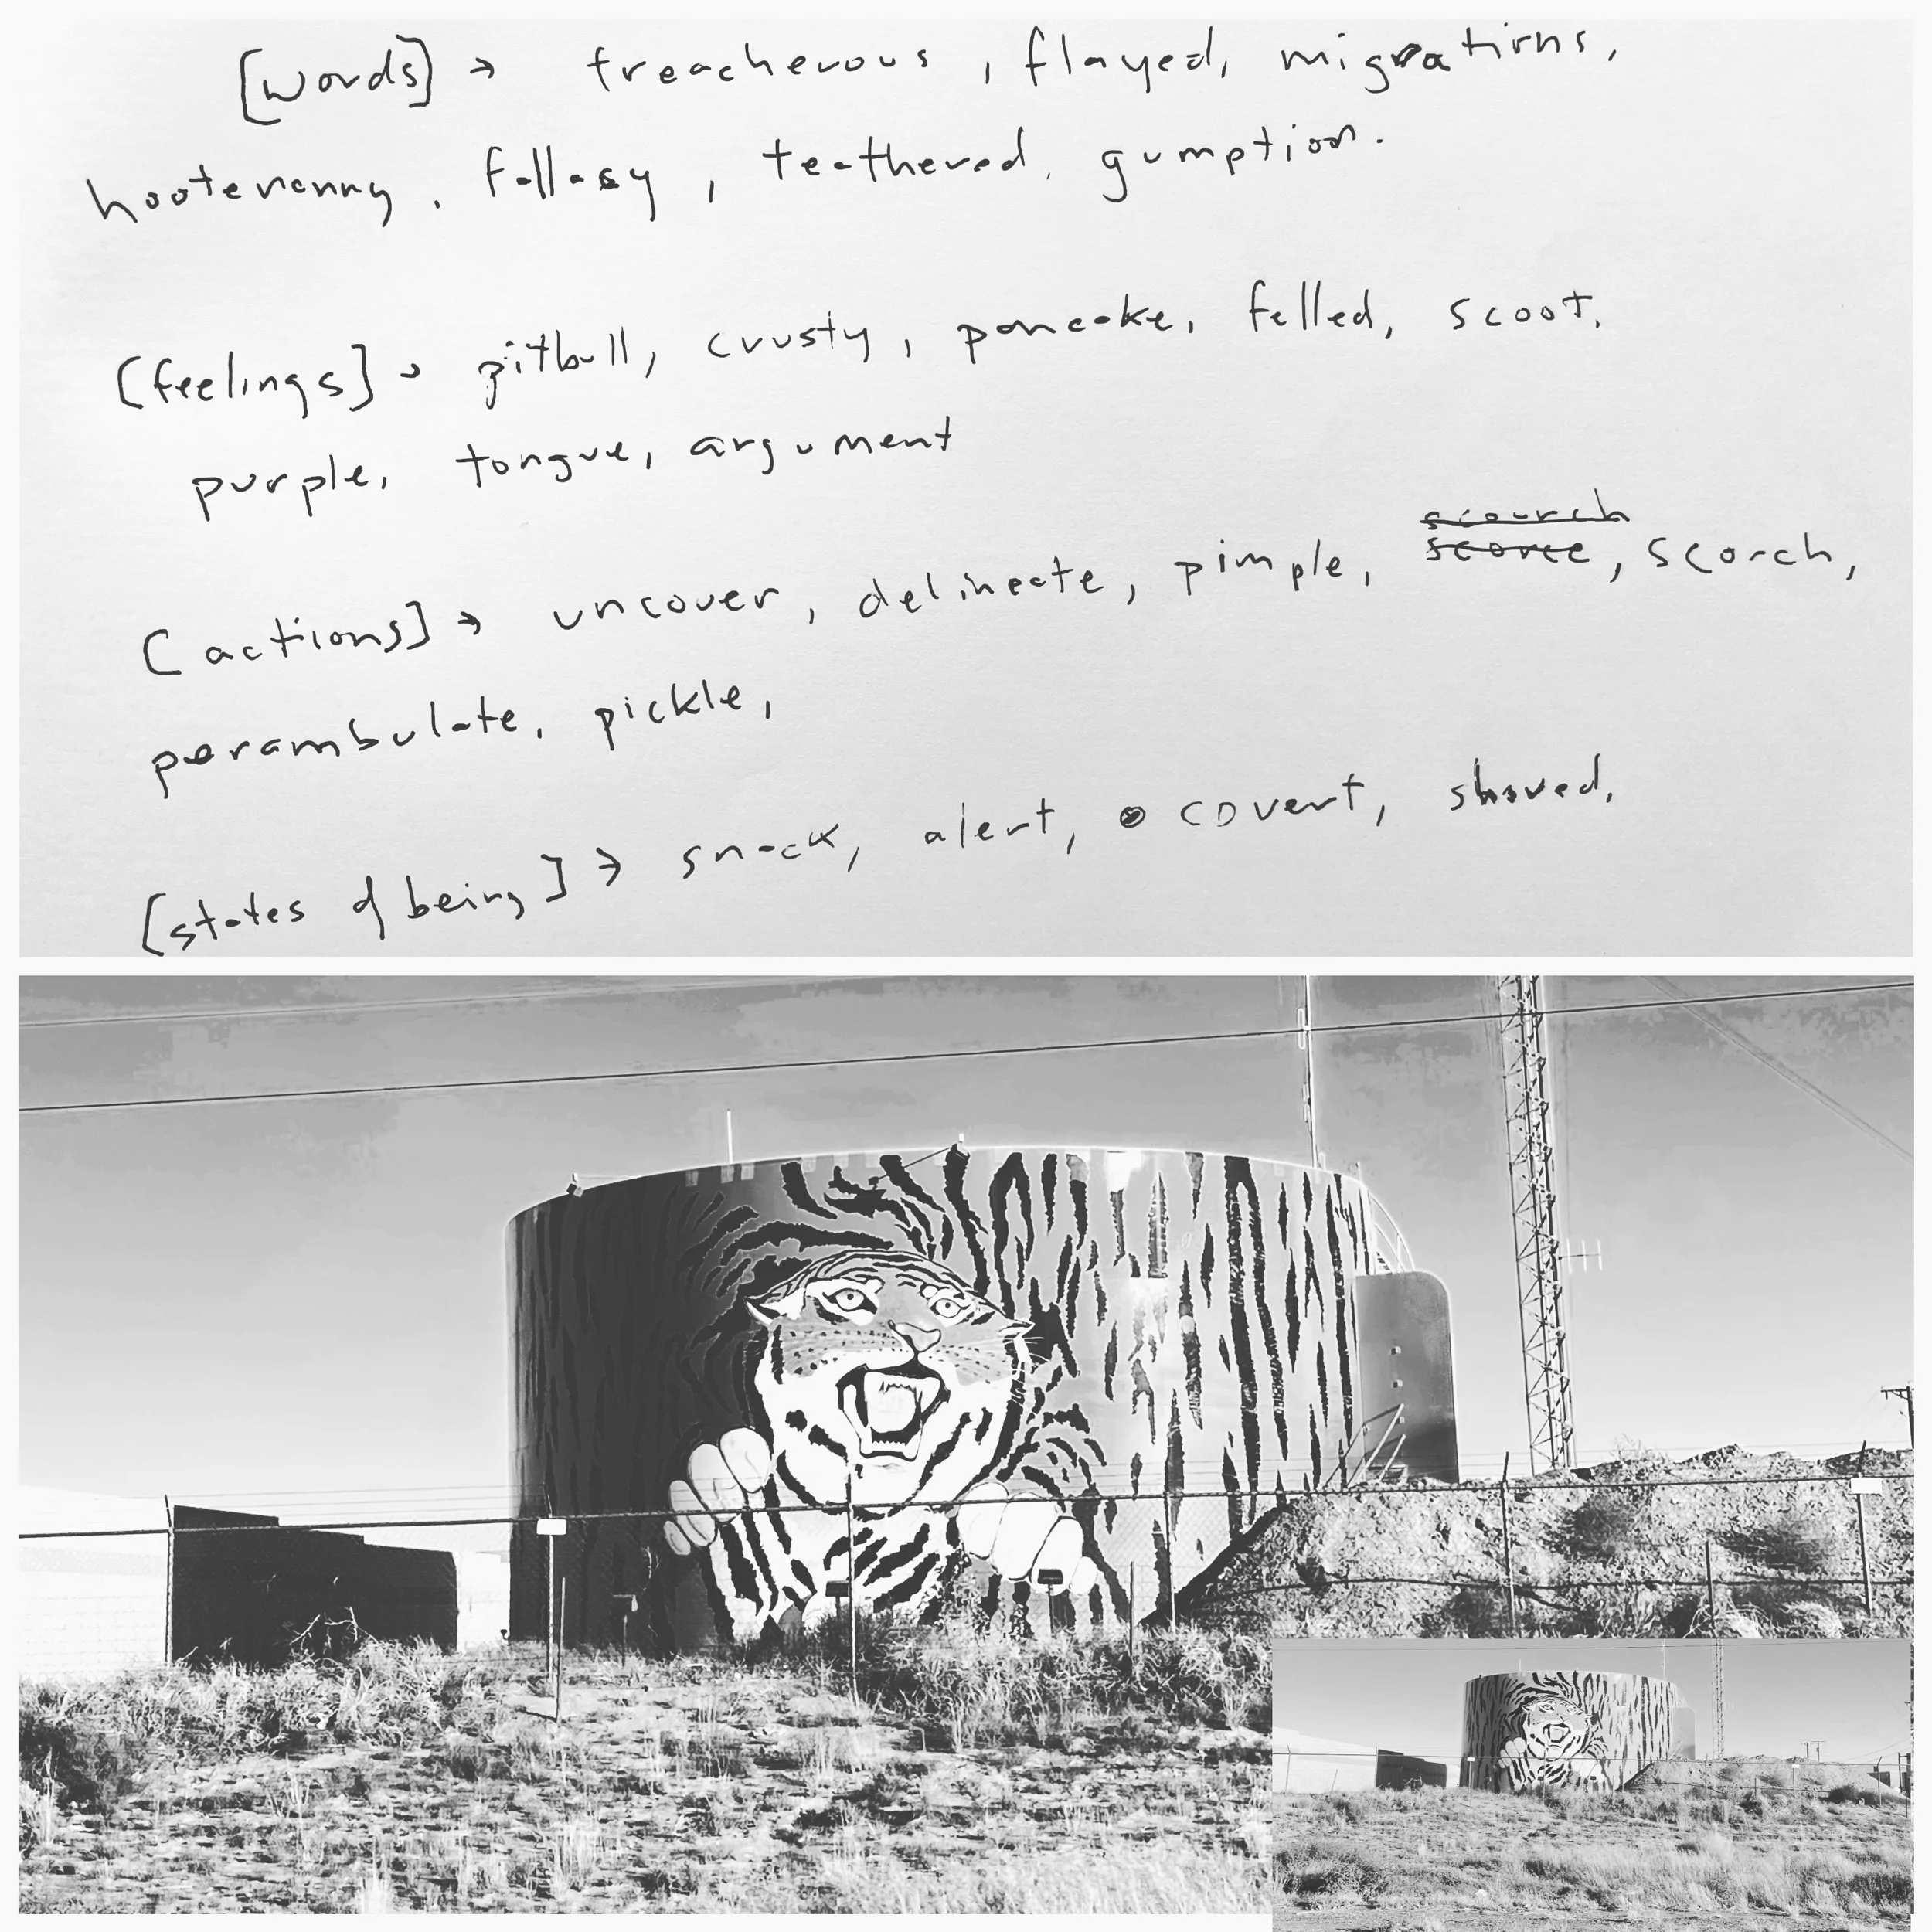 [words] → treacherous, flayed, migrations,
hootenanny, fallasy, teathered, gumption.
[feelings] → pitbull, crusty, pancake, felled, scoot,
purple, tongue, argument
scourch
[actions] → uncover, delineate, pimple, scorce, scorch,
perambulate, pickle,
[states of being] → snack, alert, covert, shoved,